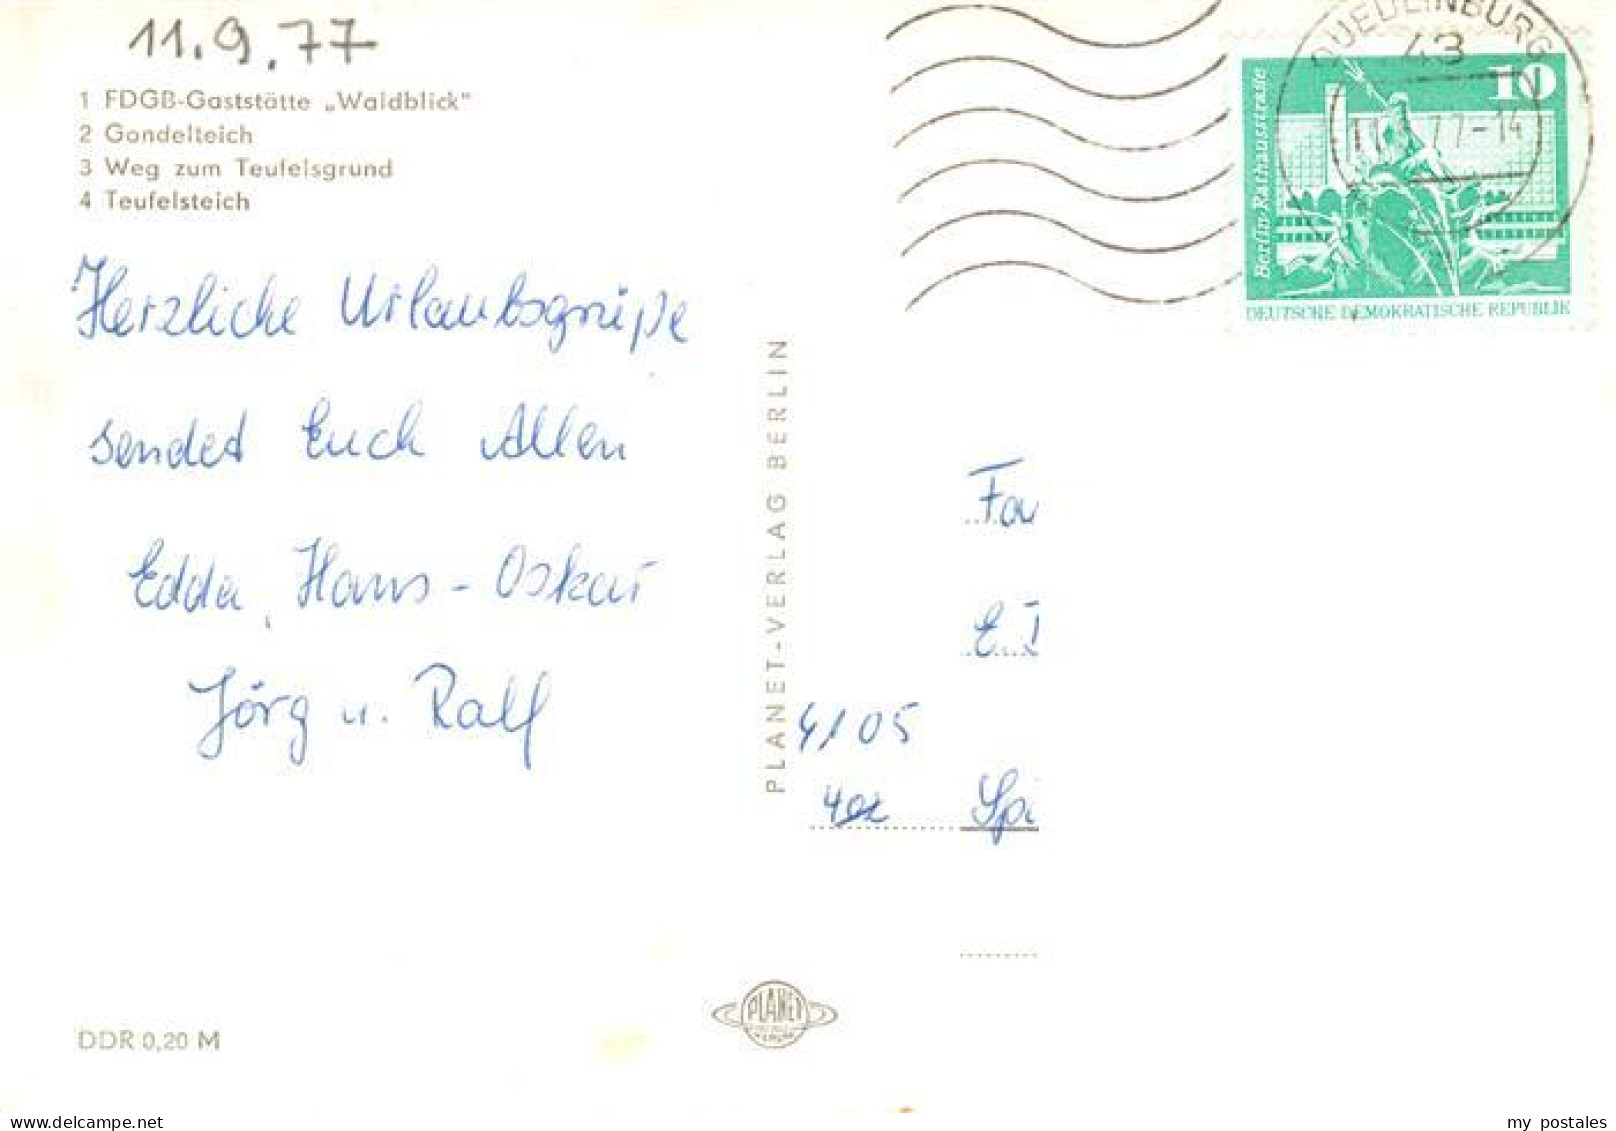 11.9.77
1 FDGB-Gaststätte „Waldblick"
2 Gondelteich
3 Weg zum Teufelsgrund
4 Teufelsteich
Herzliche Urlaubsgrüße
sendet Euch Allen
Edda, Hans-Oskar
Jörg u. Ralf
DDR 0,20 M
PLANET-VERLAG BERLIN
PLANET
QUEDLINBURG
43
77-14
10
Berlin-Rathausstraße
DEUTSCHE DEMOKRATISCHE REPUBLIK
Fa
E.
4105
402 Sp
delcampe.net
my postales